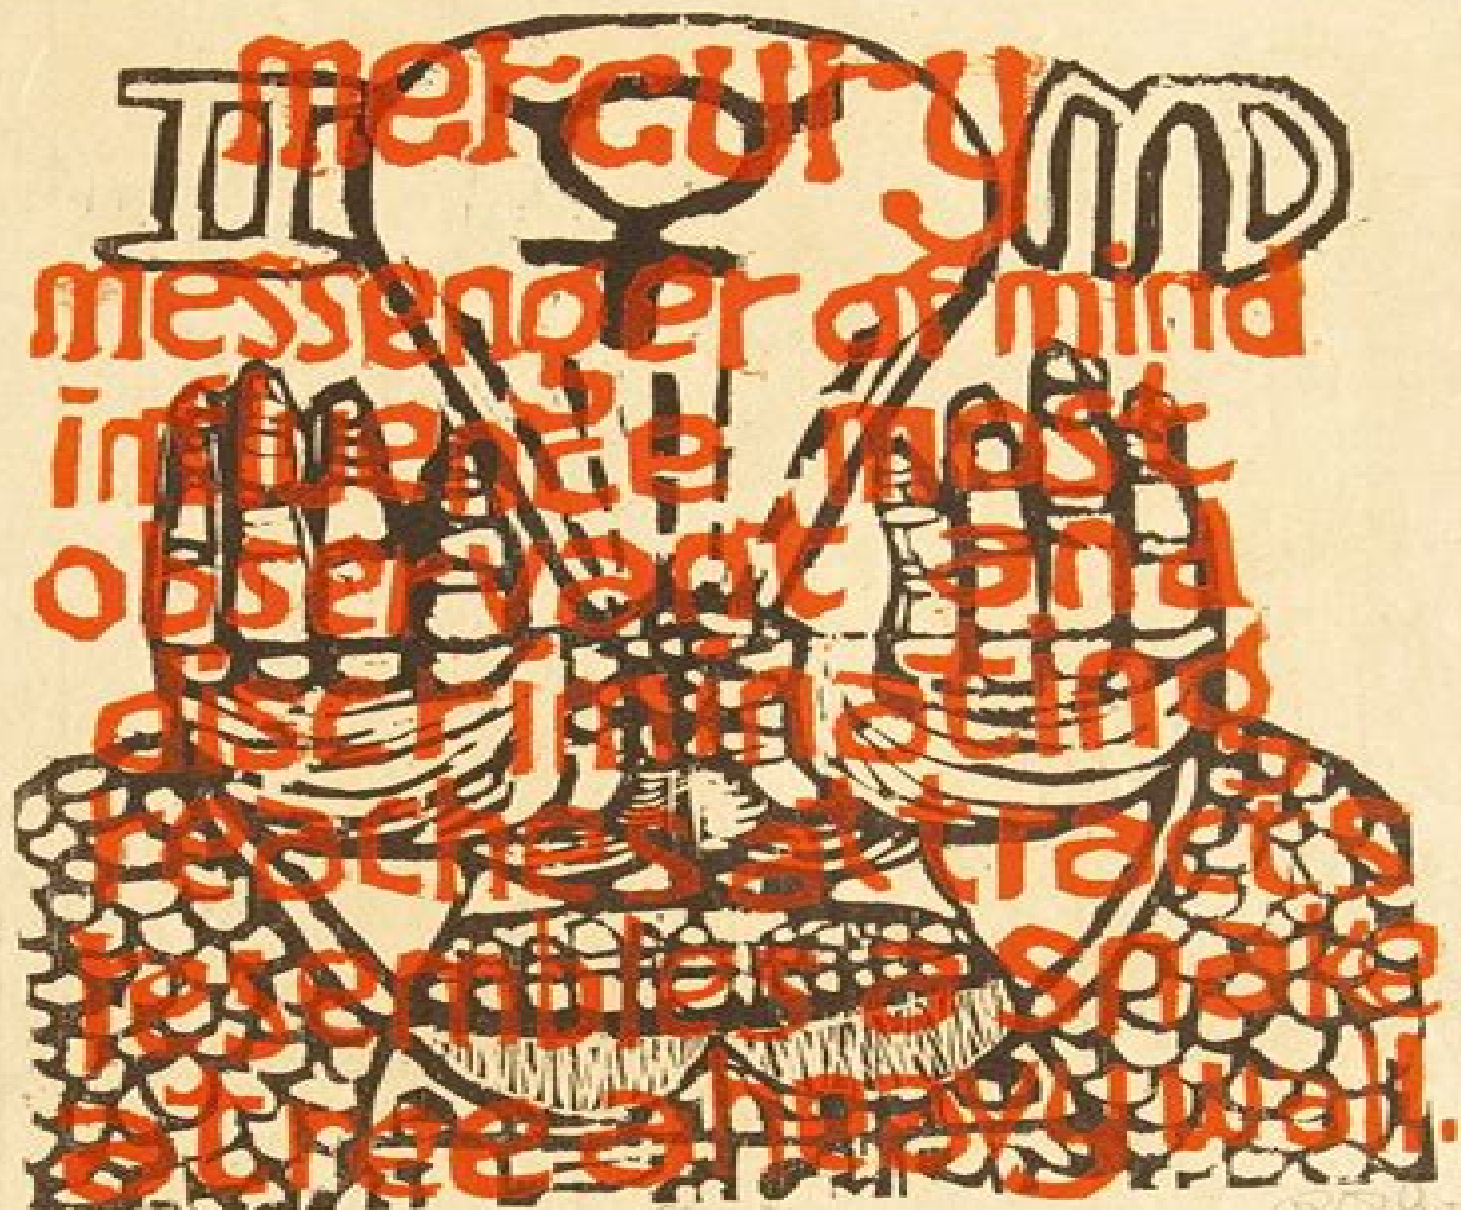 mercury
messenger of mind
influence most
observant and
discriminating
reaches attracts
resembles a snake
a tree a heavy wall.